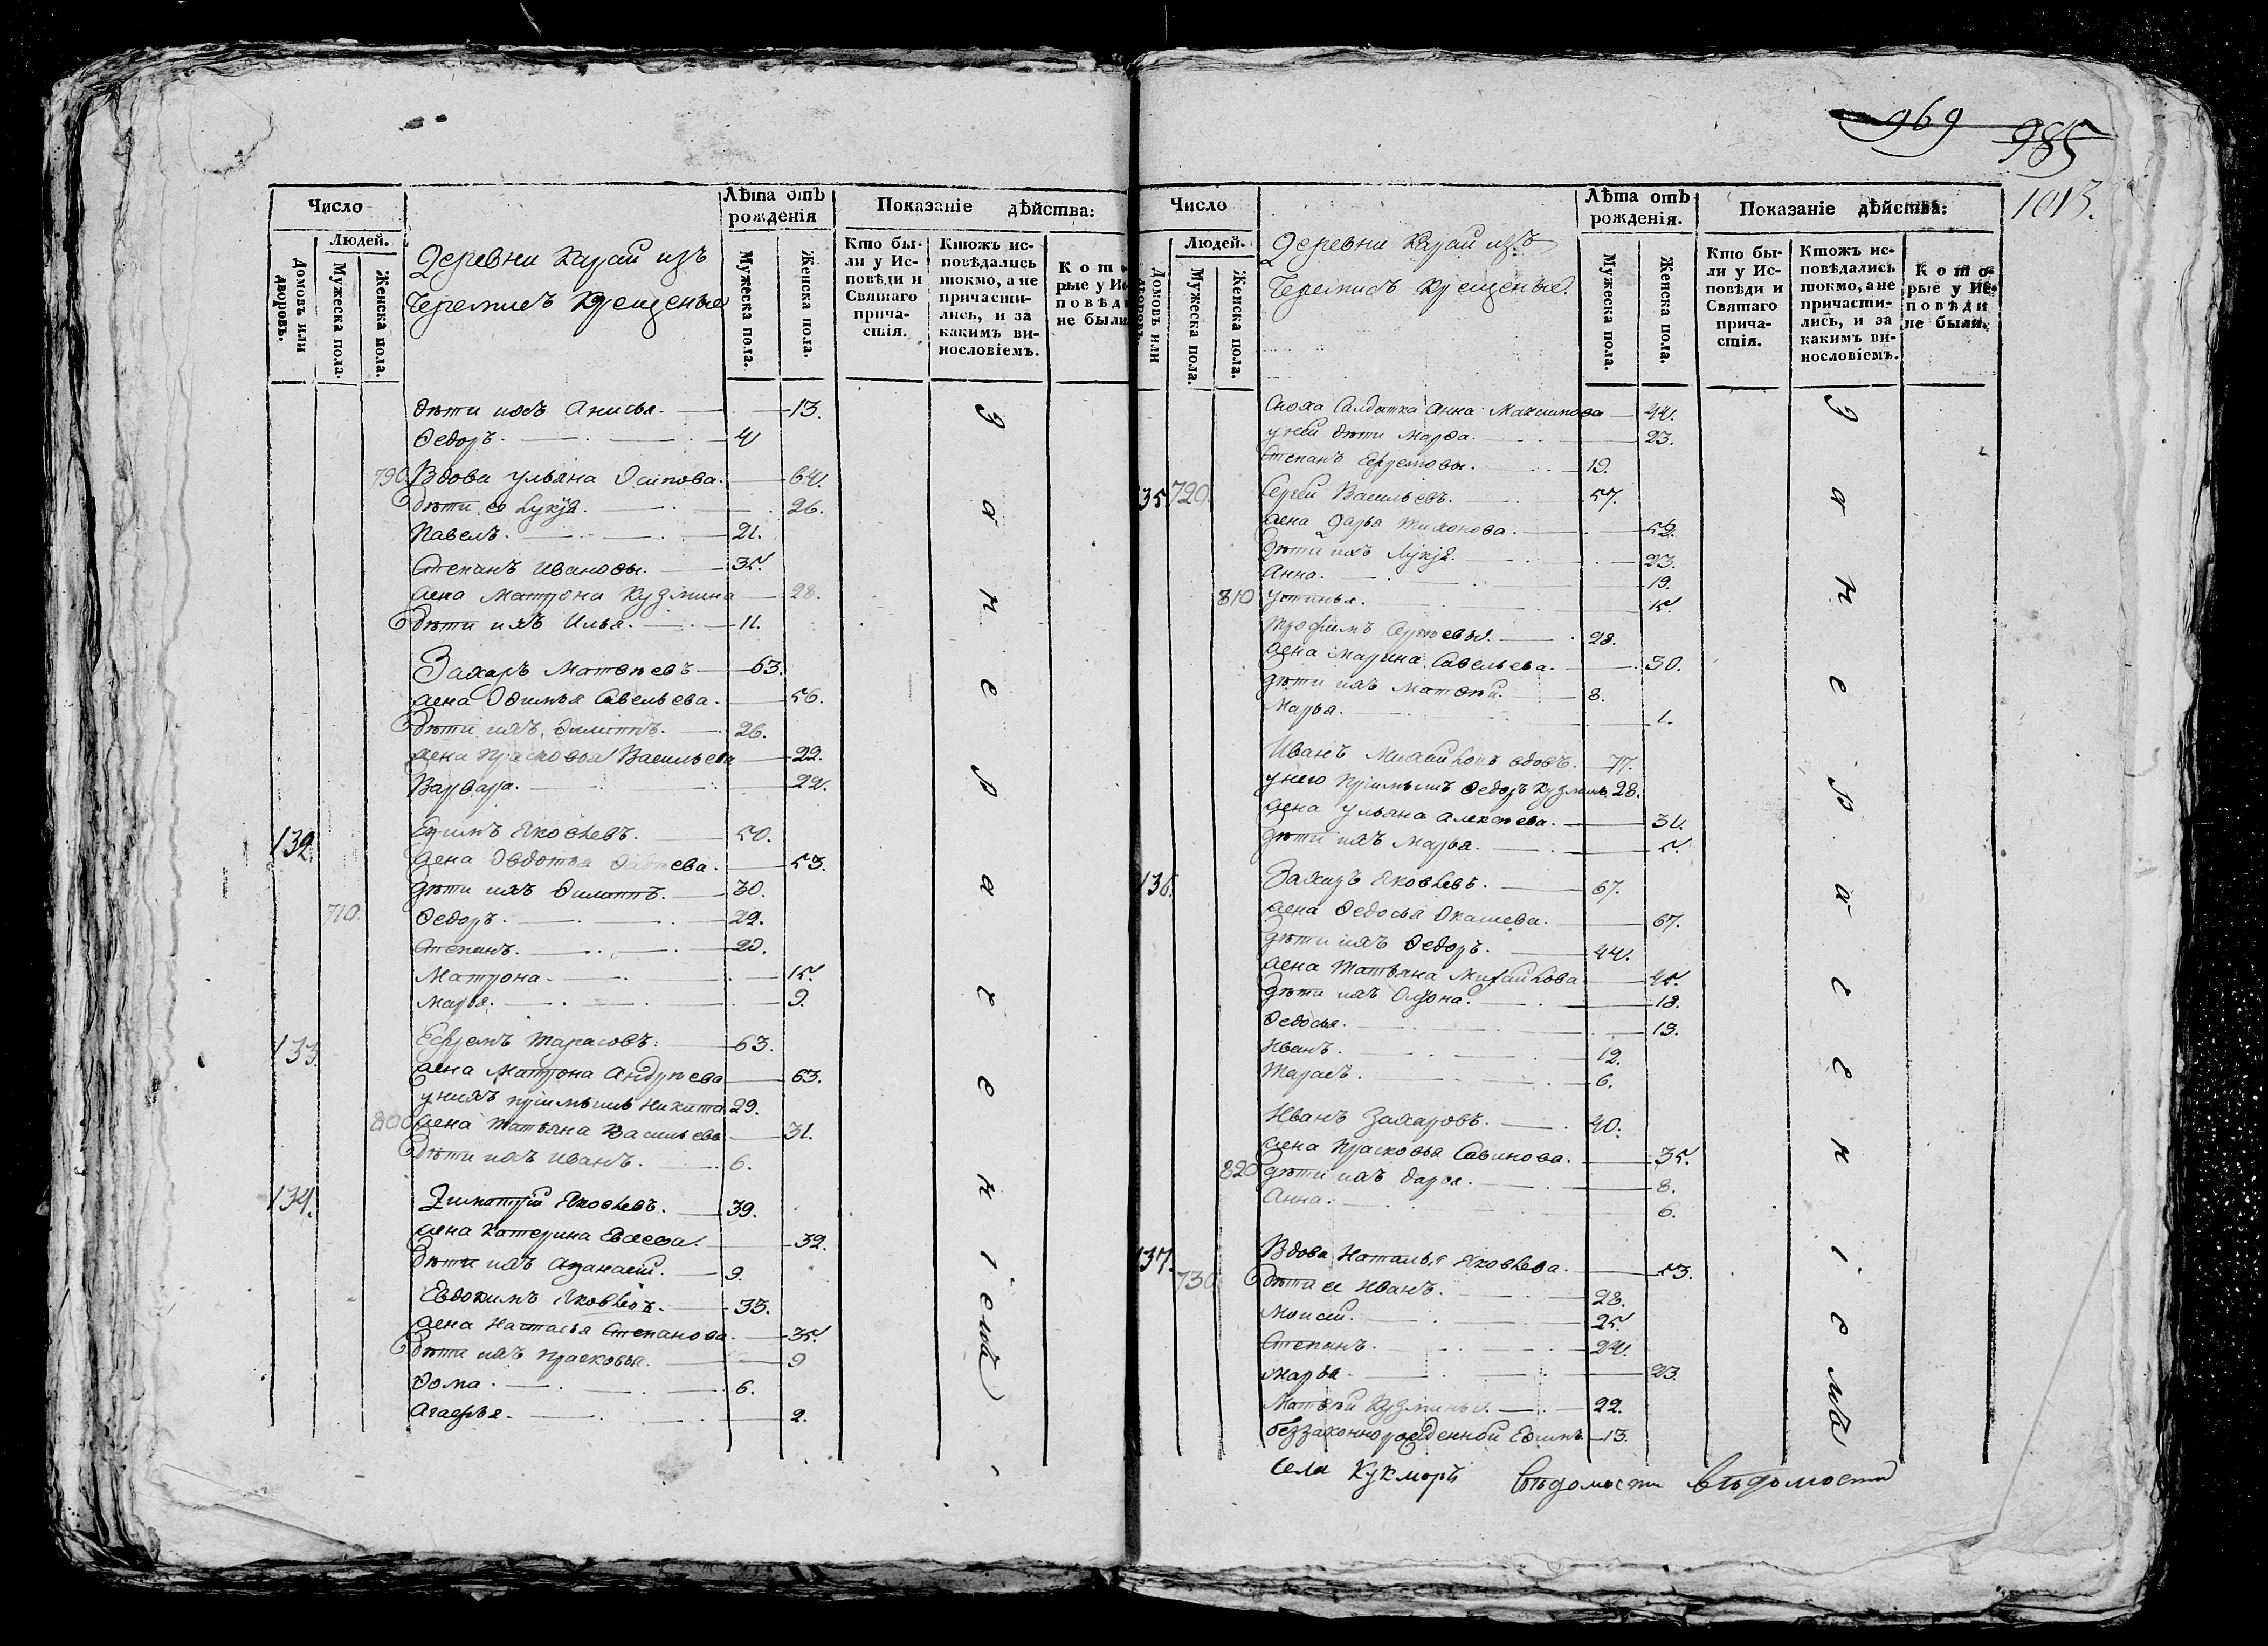 969
985
1013.
Число
Лѣта отъ рожденія
Показаніе дѣйства:
Людей.
Домовъ или дворовъ.
Мужеска пола.
Женска пола.
Деревни Карай изъ
Черемисъ Крещеные
Мужеска пола.
Женска пола.
Кто были у Исповѣди и Святаго причастія.
Ктожъ исповѣдались токмо, а не причастились, и за какимъ винословіемъ.
Которые у Исповѣди не были.
дѣти ихъ Анисья. 13.
Ѳедоръ. 4
790. Вдова Ульяна Осипова. 64.
дѣти ее Лукѣя. 26.
Павелъ. 21.
Степанъ Ивановы. 35.
жена Матрона Кузмина 28.
дѣти ихъ Илья. 11.
Захаръ Матвѣевъ 63.
жена Офимья Савельева. 56.
дѣти ихъ Филиппъ. 26.
жена Прасковья Васильева 22.
Варвара. 22.
132. Ефимъ Яковлевъ. 50.
жена Овдотья 53.
дѣти ихъ Филиппъ. 30.
710. Ѳедоръ. 22.
Степанъ. 20.
Матрона. 15.
Марья. 9.
133. Ефремъ Тарасовъ. 63.
жена Матрона Андрѣева 63.
у нихъ пріимышъ Никита 29.
800 жена Татьяна Васильева 31.
дѣти ихъ Иванъ. 6.
134. Димитрій Яковлевъ. 39.
жена Катерина 32.
дѣти ихъ Афанасій. 9.
Евдокимъ Яковлевъ. 33.
жена Настасья Степанова. 35.
дѣти ихъ Прасковья. 9
Ѳома. 6.
Агафья. 2.
за неравеченіемъ
Число
Лѣта отъ рожденія.
Показаніе дѣйства:
Людей.
Домовъ или дворовъ.
Мужеска пола.
Женска пола.
Деревни Карай изъ
Черемисъ Крещеные.
Мужеска пола.
Женска пола.
Кто были у Исповѣди и Святаго причастія.
Ктожъ исповѣдались токмо, а не причастились, и за какимъ винословіемъ.
Которые у Исповѣди не были.
Сноха Салдатка Анна Максимова 44.
у ней дѣти Марѳа. 23.
Степанъ Ефремовы. 19.
135 720. Сергѣй Васильевъ. 57.
жена Дарья Тихонова. 52.
дѣти ихъ Лукѣя. 23.
Анна. 19.
810 Устинья. 15.
Трофимъ Сергѣевы. 28.
жена Марина Савельева. 30.
дѣти ихъ Матвѣй. 8.
Марья. 1.
Иванъ Михайловъ вдовъ. 77.
у него пріимышъ Ѳедоръ Кузминъ 28.
жена Ульяна Алексѣева. 34.
дѣти ихъ Марья. 5.
136. Захаръ Яковлевъ. 67.
жена Ѳедосья 67.
дѣти ихъ Ѳедоръ. 44.
жена Татьяна Михайлова 45.
дѣти ихъ 18.
Ѳедосья. 13.
Иванъ. 12.
Тарасъ. 6.
Иванъ Захаровъ. 40.
жена Прасковья Савинова. 35.
820 дѣти ихъ Дарья. 8.
Анна. 6.
137. Вдова Наталья Яковлева. 53.
730. дѣти ее Иванъ. 28.
Моисей. 25.
Степанъ. 24.
Марѳа. 23.
Матвѣй Кузмины. 22.
беззаконнорожденной Ефимъ 13.
за неравеченіемъ
села Кукморъ вѣдомости вѣдомости